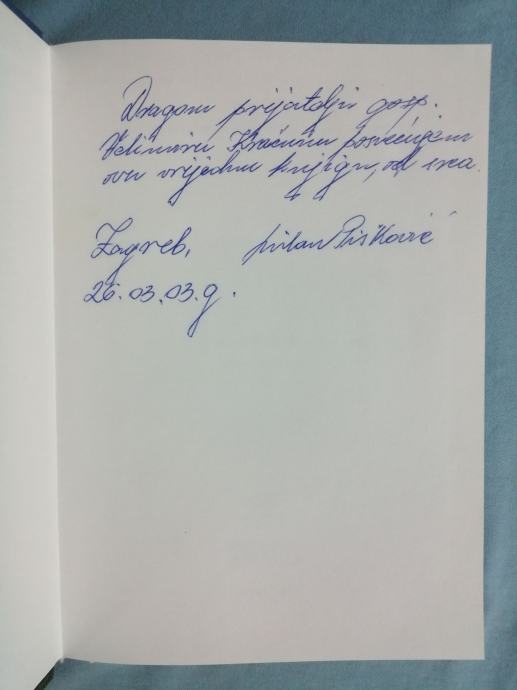 Dragom prijatelju gosp.
Velimiru posvećujem
ovu vrijednu knjigu, od srca.
Zagreb, Milan Pišković
26.03.03.g.